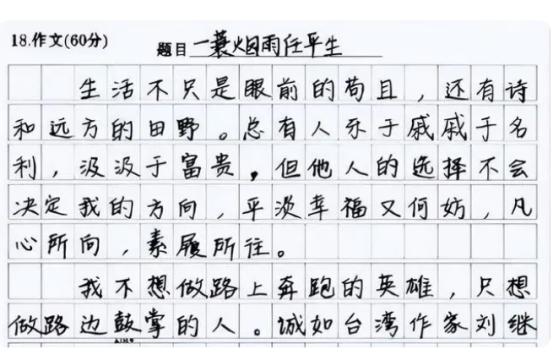 18.作文(60分)
题目 一蓑烟雨任平生
生活不只是眼前的苟且，还有诗
和远方的田野。总有人乐于戚戚于名
利，汲汲于富贵，但他人的选择不会
决定我的方向，平淡幸福又何妨，凡
心所向，素履所往。
我不想做路上奔跑的英雄，只想
做路边鼓掌的人。诚如台湾作家刘继